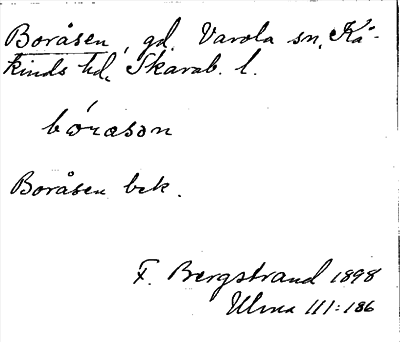 Boråsen, gd. Varola sn, Kå-
kinds hd, Skarab. l.
bórasən
Boråsen bek.
F. Bergstrand 1898
Ulma 111:186